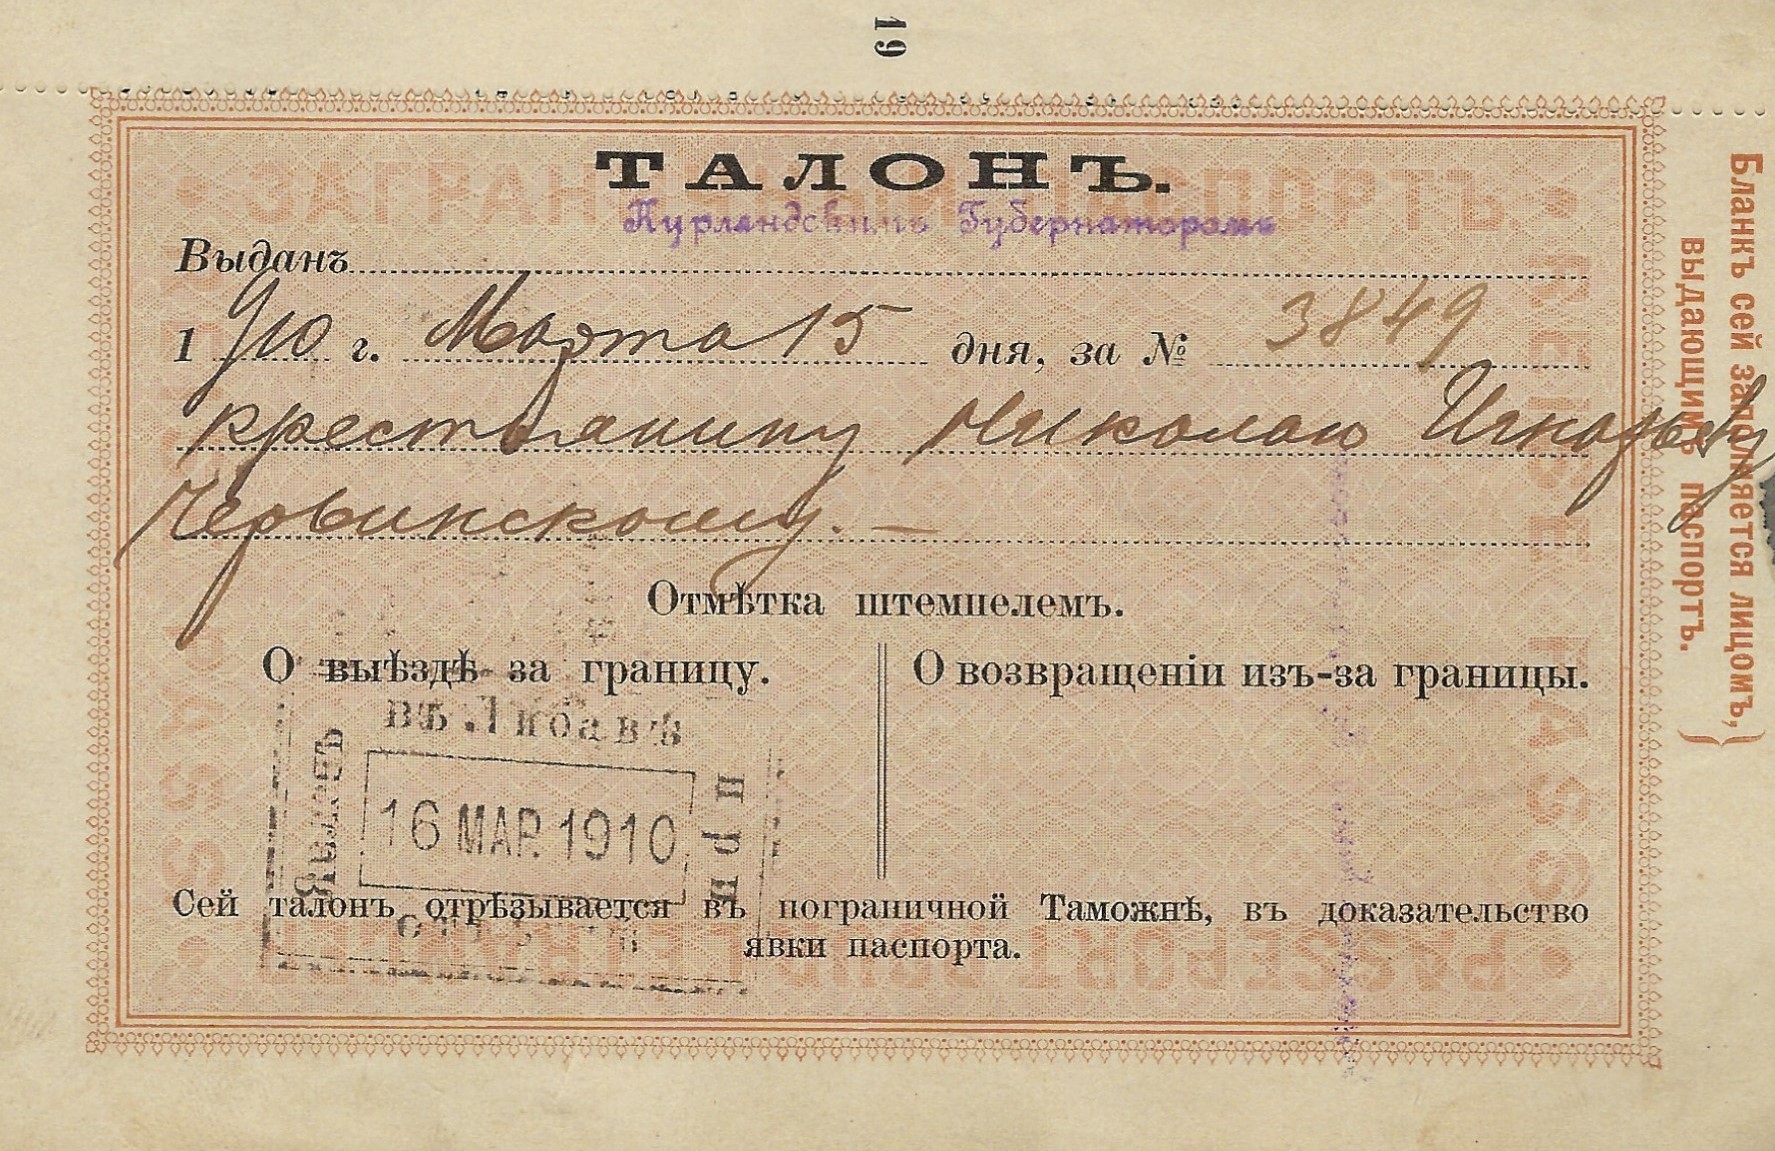 19
ТАЛОНЪ.
Курляндскимъ Губернаторомъ
Выданъ
1910 г. Марта 15 дня, за № 3849
крестьянину Николаю Игнатьеву
Червинскому. —
Отмѣтка штемпелемъ.
О выѣздѣ за границу.
О возвращеніи изъ-за границы.
въ Либавѣ
Явленъ
16 МАР. 1910
при
Сей талонъ отрѣзывается въ пограничной Таможнѣ, въ доказательство
явки паспорта.
Бланкъ сей заполняется лицомъ,
выдающимъ паспортъ.